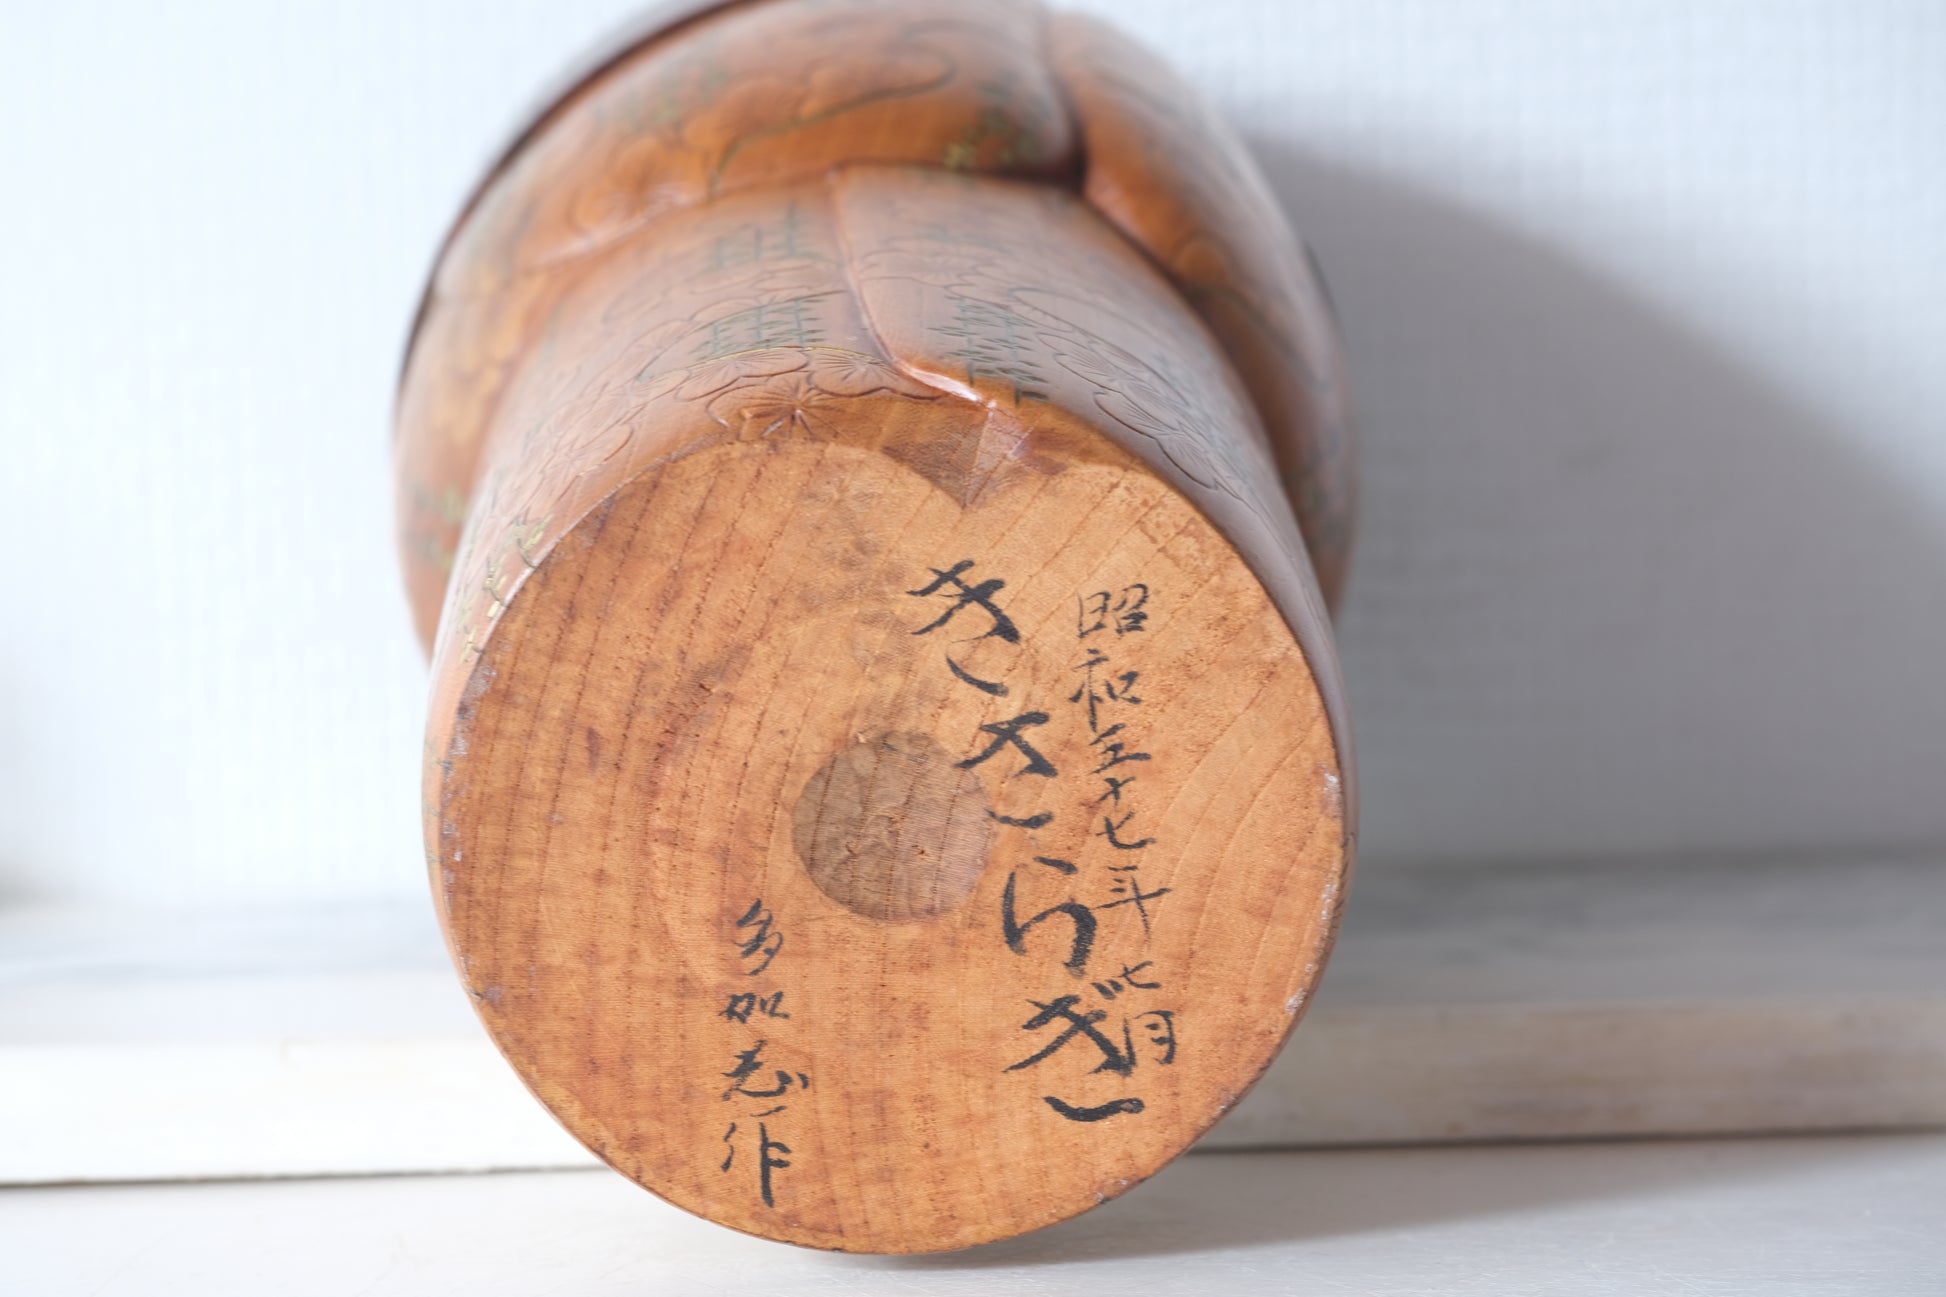 昭和五十七年七月
きさらぎ
多加志作